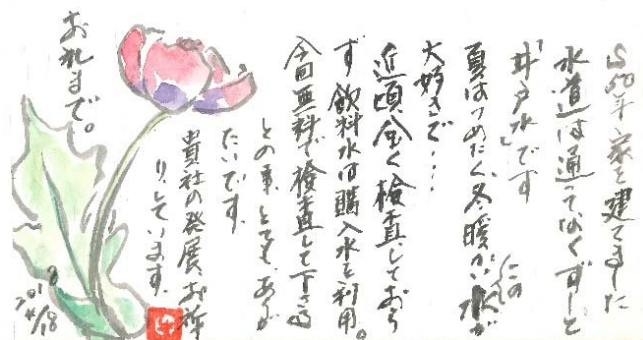 S50年、家を建てました
水道は通ってなくずーと
「井戸水」です
夏はつめたく、冬、暖かいこの水が
大好きで…
近頃全く検査しておら
ず飲料水は購入水を利用。
今回無料で検査して下さる
との事、とても、ありが
たいです。
貴社の発展、お祈
りしています。
おれまで。
2018
4/18